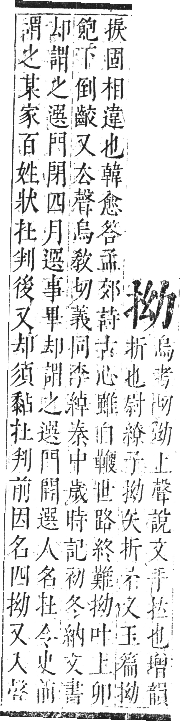 拗
烏考切坳上聲說文手拉也增韻
折也尉繚子拗矢折矛又玉篇拗
捩固相違也韓愈答孟郊詩古心雖自鞭世路終難拗叶上卯
飽下倒齩又去聲烏敎切義同李綽秦中歲時記初冬納文書
却謂之選門閉四月選事畢却謂之選門開選人名在令史前
謂之某家百姓狀在判後又却須黏在判前因名四拗又入聲